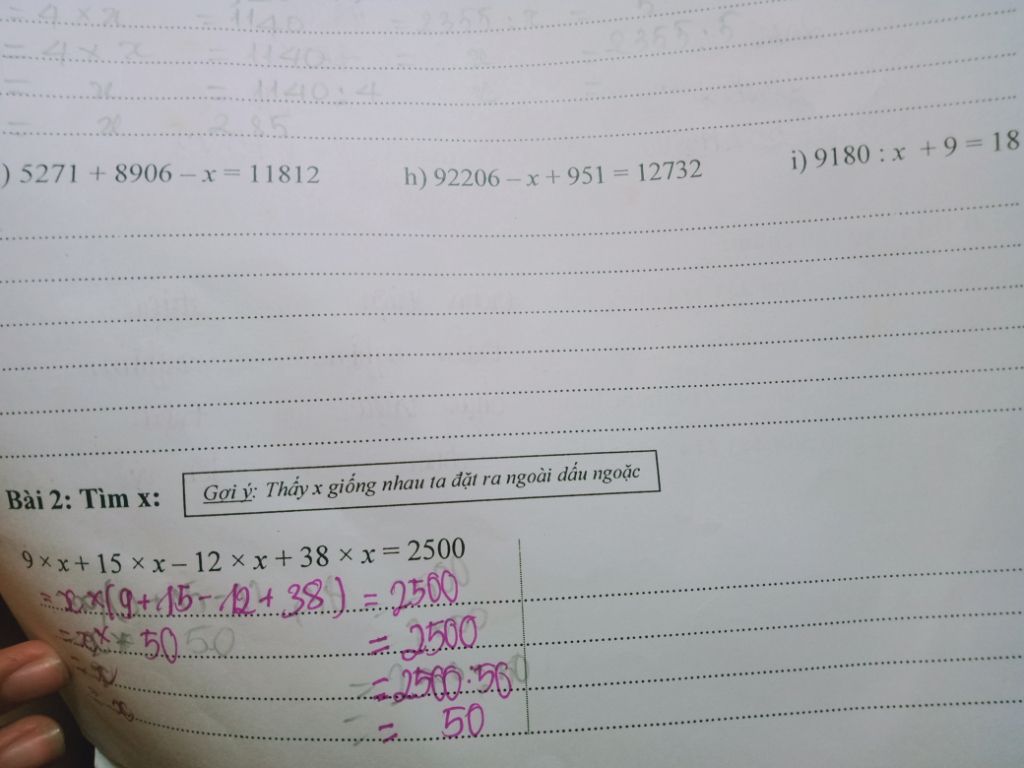 = 4 × x = 1140 = 2355 : x =
= 4 × x = 1140 = x = 2355 : 5
= x = 1140 : 4 =
= x 285
) 5271 + 8906 – x = 11812 h) 92206 – x + 951 = 12732 i) 9180 : x + 9 = 18
Bài 2: Tìm x: Gợi ý: Thấy x giống nhau ta đặt ra ngoài dấu ngoặc
9 × x + 15 × x – 12 × x + 38 × x = 2500
= x × (9 + 15 - 12 + 38) = 2500
= x × 50 = 2500
= x = 2500 : 50
= x = 50